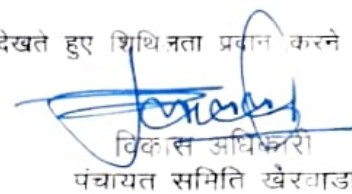 देखते हुए शिथिलता प्रदान करने
विकास अधिकारी
पंचायत समिति खेरवाडा